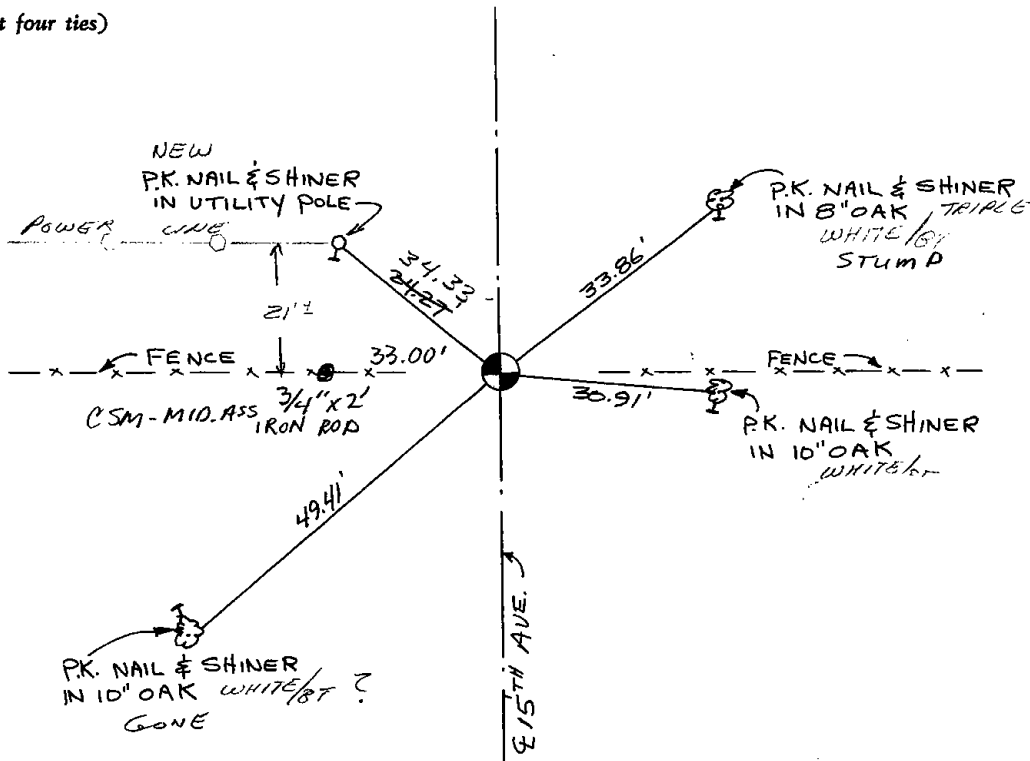 t four ties)
NEW
P.K. NAIL & SHINER
IN UTILITY POLE
POWER LINE
34.33
24.27
21'±
FENCE
33.00'
3/4" x 2'
IRON ROD
CSM-MID. ASS
33.86'
P.K. NAIL & SHINER
IN 8" OAK TRIPLE
WHITE/BT
STUMP
FENCE
30.91'
P.K. NAIL & SHINER
IN 10" OAK
WHITE/BT
49.41'
P.K. NAIL & SHINER
IN 10" OAK WHITE/BT ?
GONE
℄ 15TH AVE.